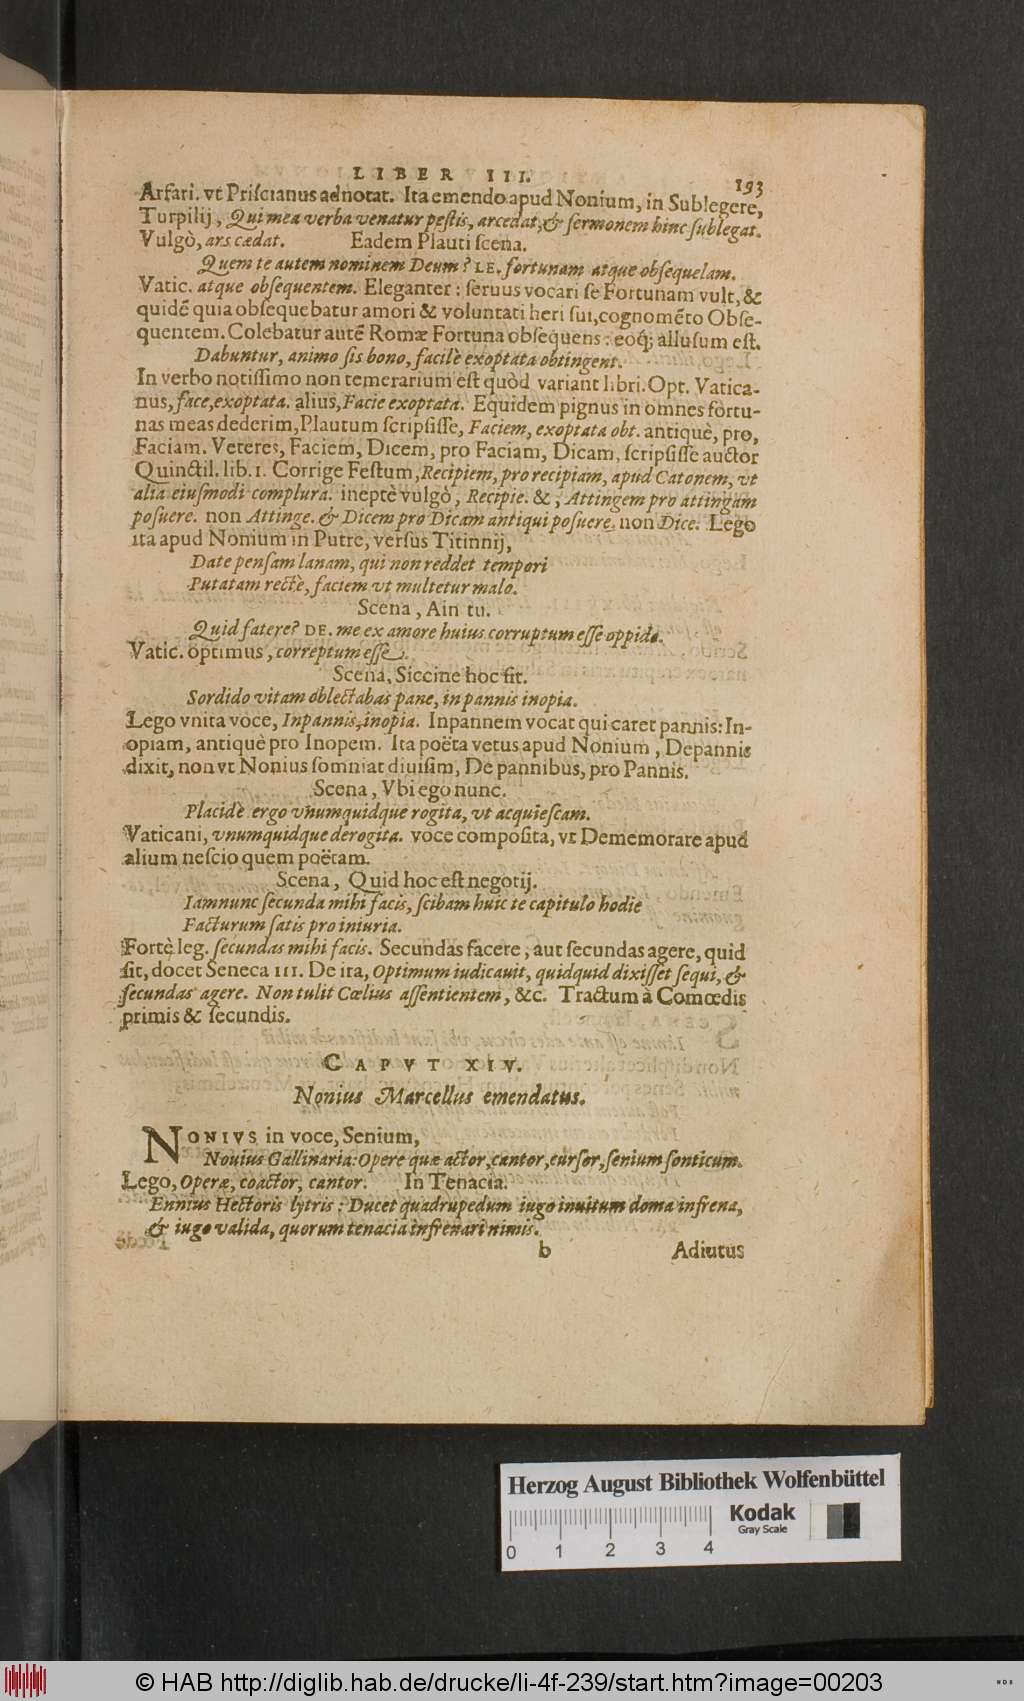 LIBER III. 193
Arfari. vt Priſcianus adnotat. Ita emendo apud Nonium, in Sublegere,
Turpilij, Qui mea verba venatur peſtis, arcedat, & ſermonem hinc ſublegat.
Vulgò, ars cædat. Eadem Plauti ſcena.
Quem te autem nominem Deum? LE. fortunam atque obſequelam.
Vatic. atque obſequentem. Eleganter: ſeruus vocari ſe Fortunam vult, &
quidẽ quia obſequebatur amori & voluntati heri ſui, cognomẽto Obſe-
quentem. Colebatur autẽ Romæ Fortuna obſequens: eoq́; alluſum eſt.
Dabuntur, animo ſis bono, facilè exoptata obtingent.
In verbo notiſſimo non temerarium eſt quòd variant libri. Opt. Vatica-
nus, face, exoptata. alius, Facie exoptata. Equidem pignus in omnes fortu-
nas meas dederim, Plautum ſcripſiſſe, Faciem, exoptata obt. antiquè, pro,
Faciam. Veteres, Faciem, Dicem, pro Faciam, Dicam, ſcripſiſſe auctor
Quinctil. lib. 1. Corrige Feſtum, Recipiem, pro recipiam, apud Catonem, vt
alia eiuſmodi complura. ineptè vulgò, Recipie. &, Attingem pro attingam
poſuere. non Attinge. & Dicem pro Dicam antiqui poſuere, non Dice. Lego
ita apud Nonium in Putre, verſus Titinnij,
Date penſam lanam, qui non reddet tempori
Putatam rectè, faciem vt multetur malo.
Scena, Ain tu.
Quid fatere? DE. me ex amore huius corruptum eſſe oppido.
Vatic. optimus, correptum eſſe.
Scena, Siccine hoc fit.
Sordido vitam oblectabas pane, in pannis inopia.
Lego vnita voce, Inpannis, inopia. Inpannem vocat qui caret pannis: In-
opiam, antiquè pro Inopem. Ita poëta vetus apud Nonium, Depannis
dixit, non vt Nonius ſomniat diuiſim, De pannibus, pro Pannis.
Scena, Vbi ego nunc.
Placidè ergo vnumquidque rogita, vt acquieſcam.
Vaticani, vnumquidque derogita. voce compoſita, vt Dememorare apud
alium neſcio quem poëtam.
Scena, Quid hoc eſt negotij.
Iamnunc ſecunda mihi facis, ſcibam huic te capitulo hodie
Facturum ſatis pro iniuria.
Fortè leg. ſecundas mihi facis. Secundas facere, aut ſecundas agere, quid
ſit, docet Seneca III. De ira, Optimum iudicauit, quidquid dixiſſet ſequi, &
ſecundas agere. Non tulit Cœlius aſſentientem, &c. Tractum à Comœdis
primis & ſecundis.
CAPVT XIV.
Nonius Marcellus emendatus.
NONIVS in voce, Senium,
Nouius Gallinaria: Opere quæ actor, cantor, curſor, ſenium ſonticum.
Lego, Operæ, coactor, cantor. In Tenacia.
Ennius Hectoris lytris: Ducet quadrupedum iugo inuitum doma infrena,
& iugo valida, quorum tenacia infrenari nimis.
b Adiutus
Herzog August Bibliothek Wolfenbüttel
Kodak
Gray Scale
0 1 2 3 4
© HAB http://diglib.hab.de/drucke/li-4f-239/start.htm?image=00203